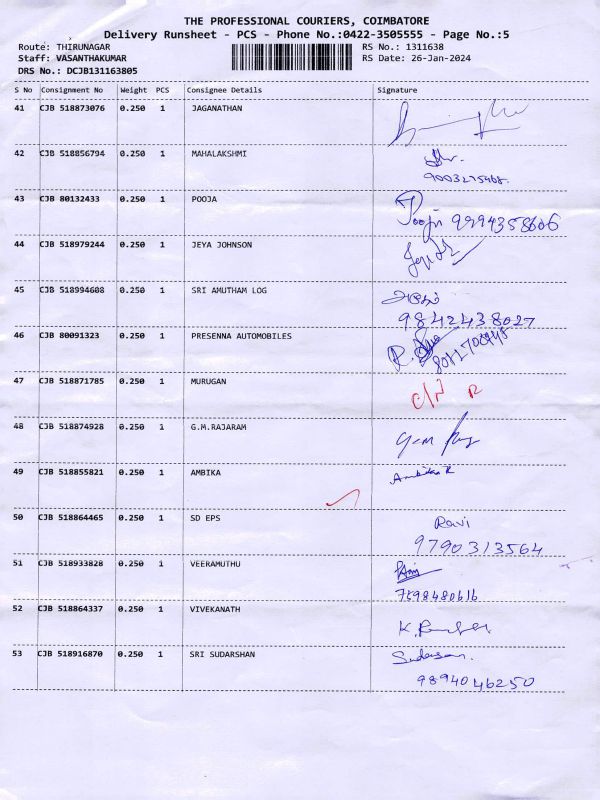 THE PROFESSIONAL COURIERS, COIMBATORE
Delivery Runsheet - PCS - Phone No.:0422-3505555 - Page No.:5
Route: THIRUNAGAR RS No.: 1311638
Staff: VASANTHAKUMAR RS Date: 26-Jan-2024
DRS No.: DCJB131163805
S No Consignment No Weight PCS Consignee Details Signature
41 CJB 518873076 0.250 1 JAGANATHAN
42 CJB 518856794 0.250 1 MAHALAKSHMI
43 CJB 80132433 0.250 1 POOJA
Pooja 9994358606
44 CJB 518979244 0.250 1 JEYA JOHNSON
45 CJB 518994608 0.250 1 SRI AMUTHAM LOG
9842438027
46 CJB 80091323 0.250 1 PRESENNA AUTOMOBILES
47 CJB 518871785 0.250 1 MURUGAN
48 CJB 518874928 0.250 1 G.M.RAJARAM
49 CJB 518855821 0.250 1 AMBIKA
Ambika R
50 CJB 518864465 0.250 1 SD EPS
Ravi
9790313564
51 CJB 518933828 0.250 1 VEERAMUTHU
7698480616
52 CJB 518864337 0.250 1 VIVEKANATH
53 CJB 518916870 0.250 1 SRI SUDARSHAN
Sudarsan.
9894046250